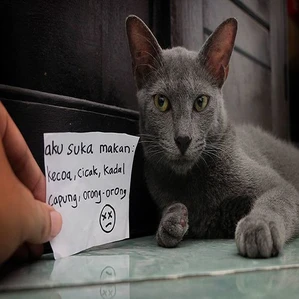 aku suka makan:
kecoa, cicak, kadal
capung, orong-orong